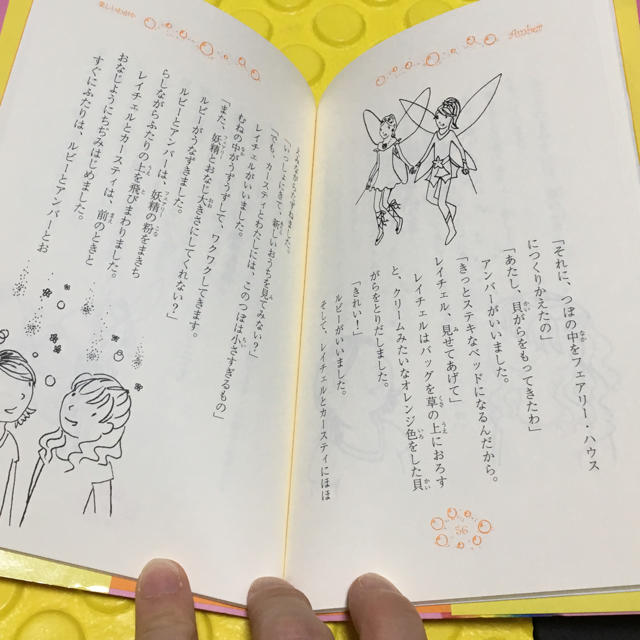 Amber
「それに、つぼの中をフェアリー・ハウス
につくりかえたの」
「あたし、貝がらをもってきたわ」
アンバーがいいました。
「きっとステキなベッドになるんだから。
レイチェル、見せてあげて」
レイチェルはバッグを草の上におろす
と、クリームみたいなオレンジ色をした貝
がらをとりだしました。
「きれい！」
ルビーがいいました。
そして、レイチェルとカースティにほほ
56
楽しいわが家
「いっしょにきて、新しいおうちを見てみない？」
レイチェルがいいました。
「でも、カースティとわたしには、このつぼは小さすぎるもの」
むねの中がうずうずして、ワクワクしてきます。
「また、妖精とおなじ大きさにしてくれない？」
ルビーがうなずきました。
ルビーとアンバーは、妖精の粉をまきち
らしながらふたりの上を飛びまわりました。
レイチェルとカースティは、前のときと
おなじようにちぢみはじめました。
すぐにふたりは、ルビーとアンバーとお